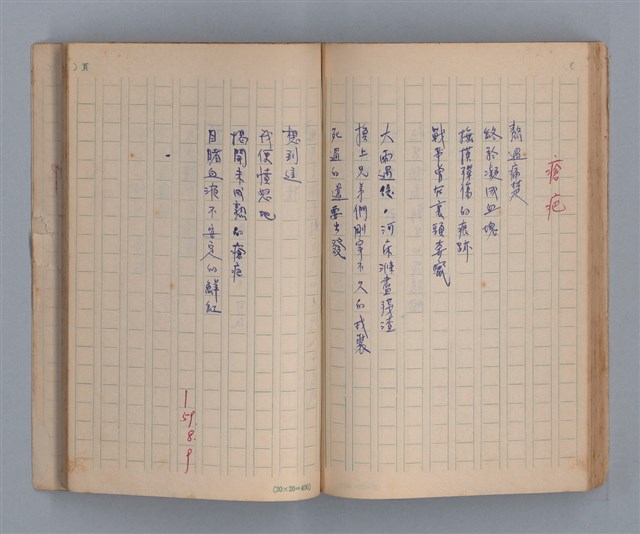 瘡疤
熬過痛楚
終於凝成血塊
撫摸彈傷的痕跡
戰爭曾在裏頭
大雨過後,河床漲盡殘渣
換上兄弟們剛穿不久的戎裝
死過的還要出發
想到這
我便憤怒地
揭開未成熟的瘡疤
目睹血液不安定的鮮紅
59.8.9
頁
(20×20=400)